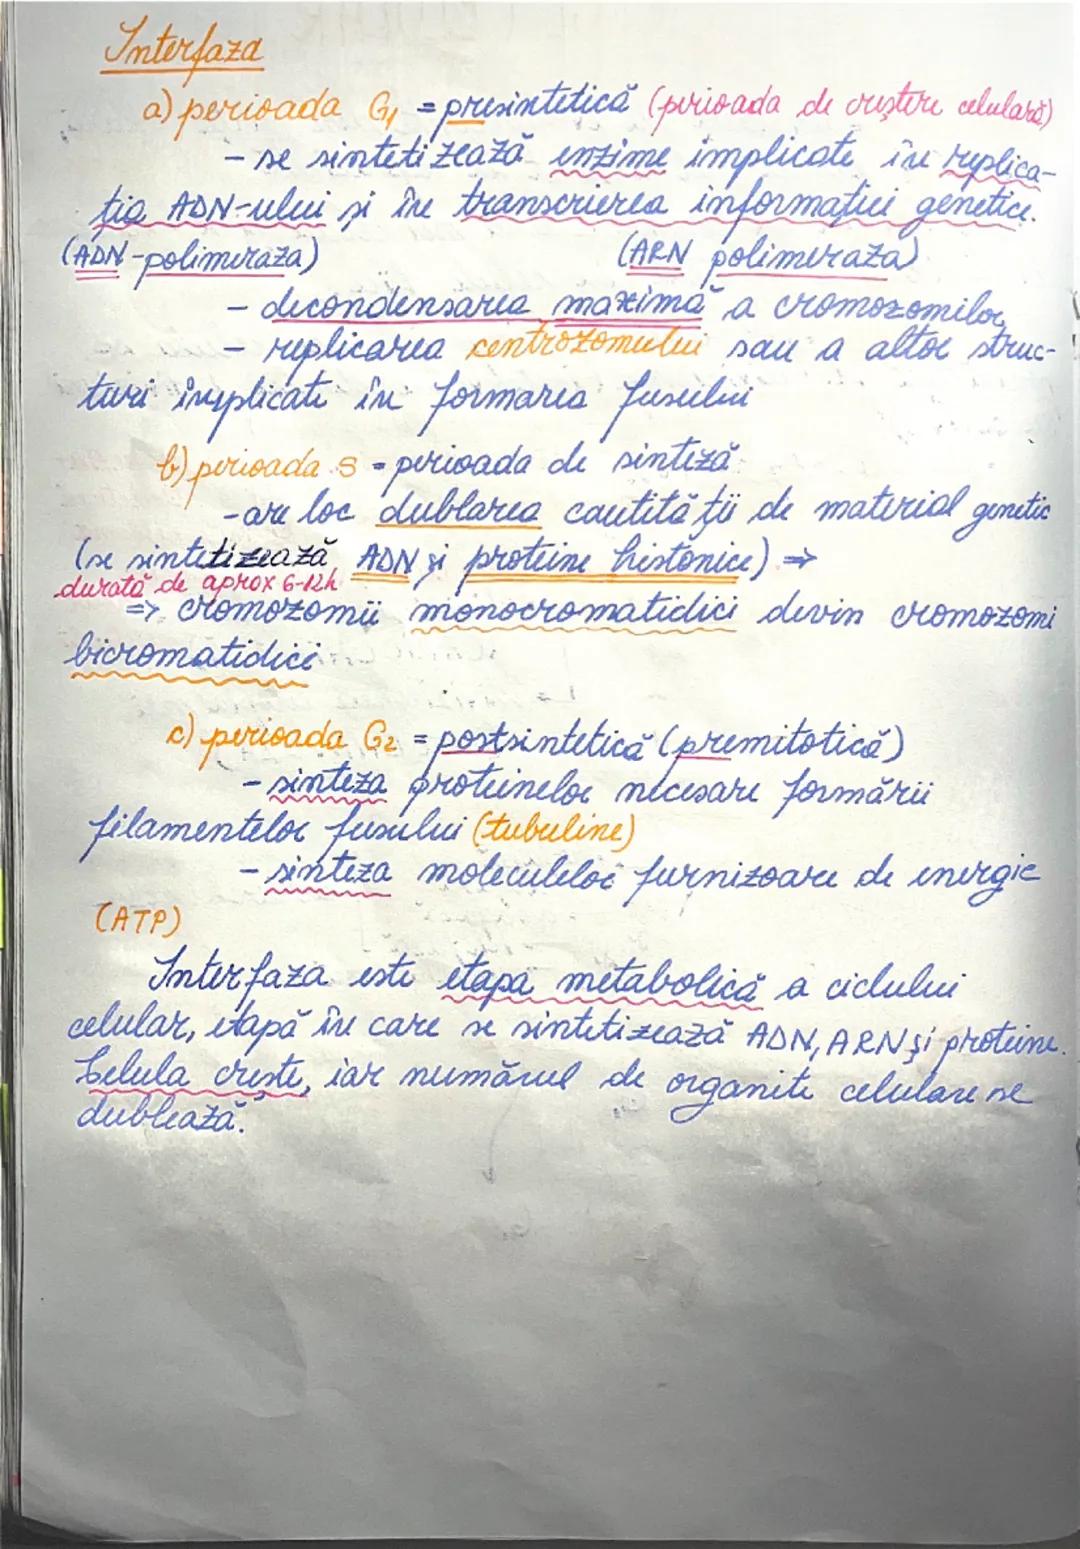 Interfaza
a) perioada G1 = presintetică (perioada de creștere celulară)
- se sintetizează enzime implicate în replica-
ția ADN-ului și în transcrierea informației genetice.
(ADN-polimeraza) (ARN polimeraza)
- decondensarea maximă a cromozomilor
- replicarea centrozomului sau a altor struc-
turi implicate în formarea fusului
b) perioada S = perioada de sinteză
- are loc dublarea cantității de material genetic
(se sintetizează ADN și proteine histonice) =>
durată de aprox 6-12h
=> cromozomii monocromatidici devin cromozomi
bicromatidici
c) perioada G2 = postsintetică (premitotică)
- sinteza proteinelor necesare formării
filamentelor fusului (tubuline)
- sinteza moleculelor furnizoare de energie
(ATP)
Interfaza este etapa metabolică a ciclului
celular, etapă în care se sintetizează ADN, ARN și proteine.
Celula crește, iar numărul de organite celulare se
dublează.